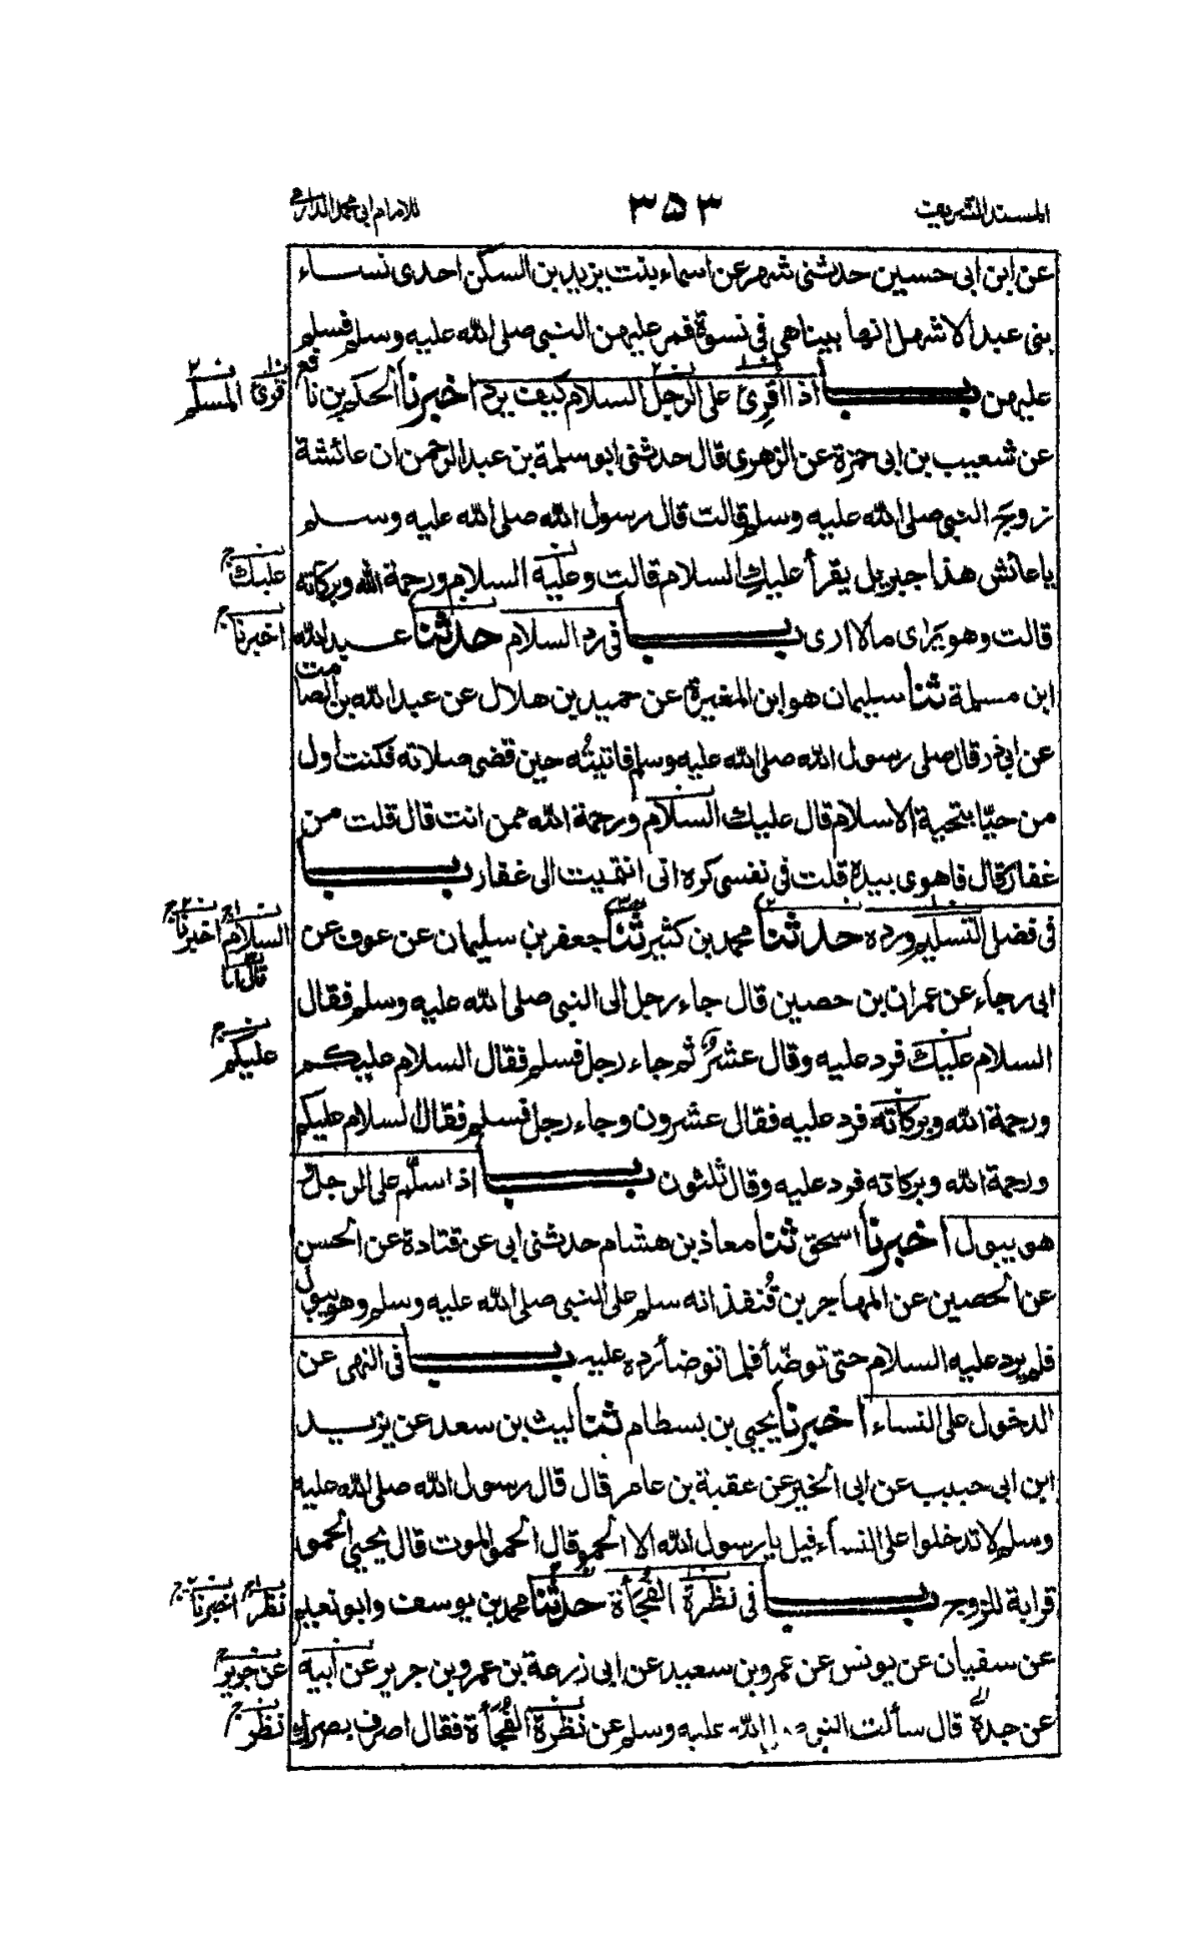 المسند الشريف ٣٥٣ للامام ابى محمد الدارمى
عن ابن ابى حسين حدثنى شهر عن اسماء بنت يزيد بن السكن احدى نساء
بنى عبد الاشهل انها بينا هى فى نسوة فمر عليهن النبى صلى الله عليه وسلم فسلم
عليهن باب اذا اقرئ على الرجل السلام كيف يرد اخبرنا الحكم بن نافع
قرئ المسلم
عن شعيب بن ابى حمزة عن الزهرى قال حدثنى ابو سلمة بن عبد الرحمن ان عائشة
زوج النبى صلى الله عليه وسلم قالت قال رسول الله صلى الله عليه وسلم
يا عائش هذا جبريل يقرأ عليك السلام قالت وعليه السلام ورحمة الله وبركاته
عليك
قالت وهو يرى مالا ارى باب فى رد السلام حدثنا عبد الله
اخبرنا
ابن مسلمة ثنا سليمان هو ابن المغيرة عن حميد بن هلال عن عبد الله بن الصامت
عن ابى ذر قال صلى رسول الله صلى الله عليه وسلم فاتيته حين قضى صلاته فكنت اول
من حيّا بتحية الاسلام قال عليك السلام ورحمة الله ممن انت قال قلت من
غفار قال فاهوى بيده قلت فى نفسى كره انى انتميت الى غفار باب
فى فضل التسليم ورده حدثنا محمد بن كثير ثنا جعفر بن سليمان عن عوف عن
السلام اخبرنا
قال انا
ابى رجاء عن عمران بن حصين قال جاء رجل الى النبى صلى الله عليه وسلم فقال
السلام عليك فرد عليه وقال عشر ثم جاء رجل فسلم فقال السلام عليكم
عليكم
ورحمة الله وبركاته فرد عليه فقال عشرون وجاء رجل فسلم فقال السلام عليكم
ورحمة الله وبركاته فرد عليه وقال ثلثون باب اذا سلّم على الرجل و
هو يبول اخبرنا اسحق ثنا معاذ بن هشام حدثنى ابى عن قتادة عن الحسن
عن الحصين عن المهاجر بن قُنفذ انه سلم على النبى صلى الله عليه وسلم وهو يبول
فلم يرد عليه السلام حتى توضّأ فلما توضأ رده عليه باب فى النهى عن
الدخول على النساء اخبرنا يحيى بن بسطام ثنا ليث بن سعد عن يزيد
ابن ابى حبيب عن ابى الخير عن عقبة بن عامر قال قال رسول الله صلى الله عليه
وسلم لا تدخلوا على النساء قيل يا رسول الله الا الحمو قال الحمو الموت قال يحيى الحمو
قرابة للزوج باب فى نظرة الفُجَأة حدثنا محمد بن يوسف وابو نعيم
نظر اخبرنا
عن سفيان عن يونس عن عمرو بن سعيد عن ابى زرعة بن عمرو بن جرير عن ابيه
عن جرير
عن جده قال سألت النبى صلى الله عليه وسلم عن نظرة الفُجَأة فقال اصرف بصرك
نظر